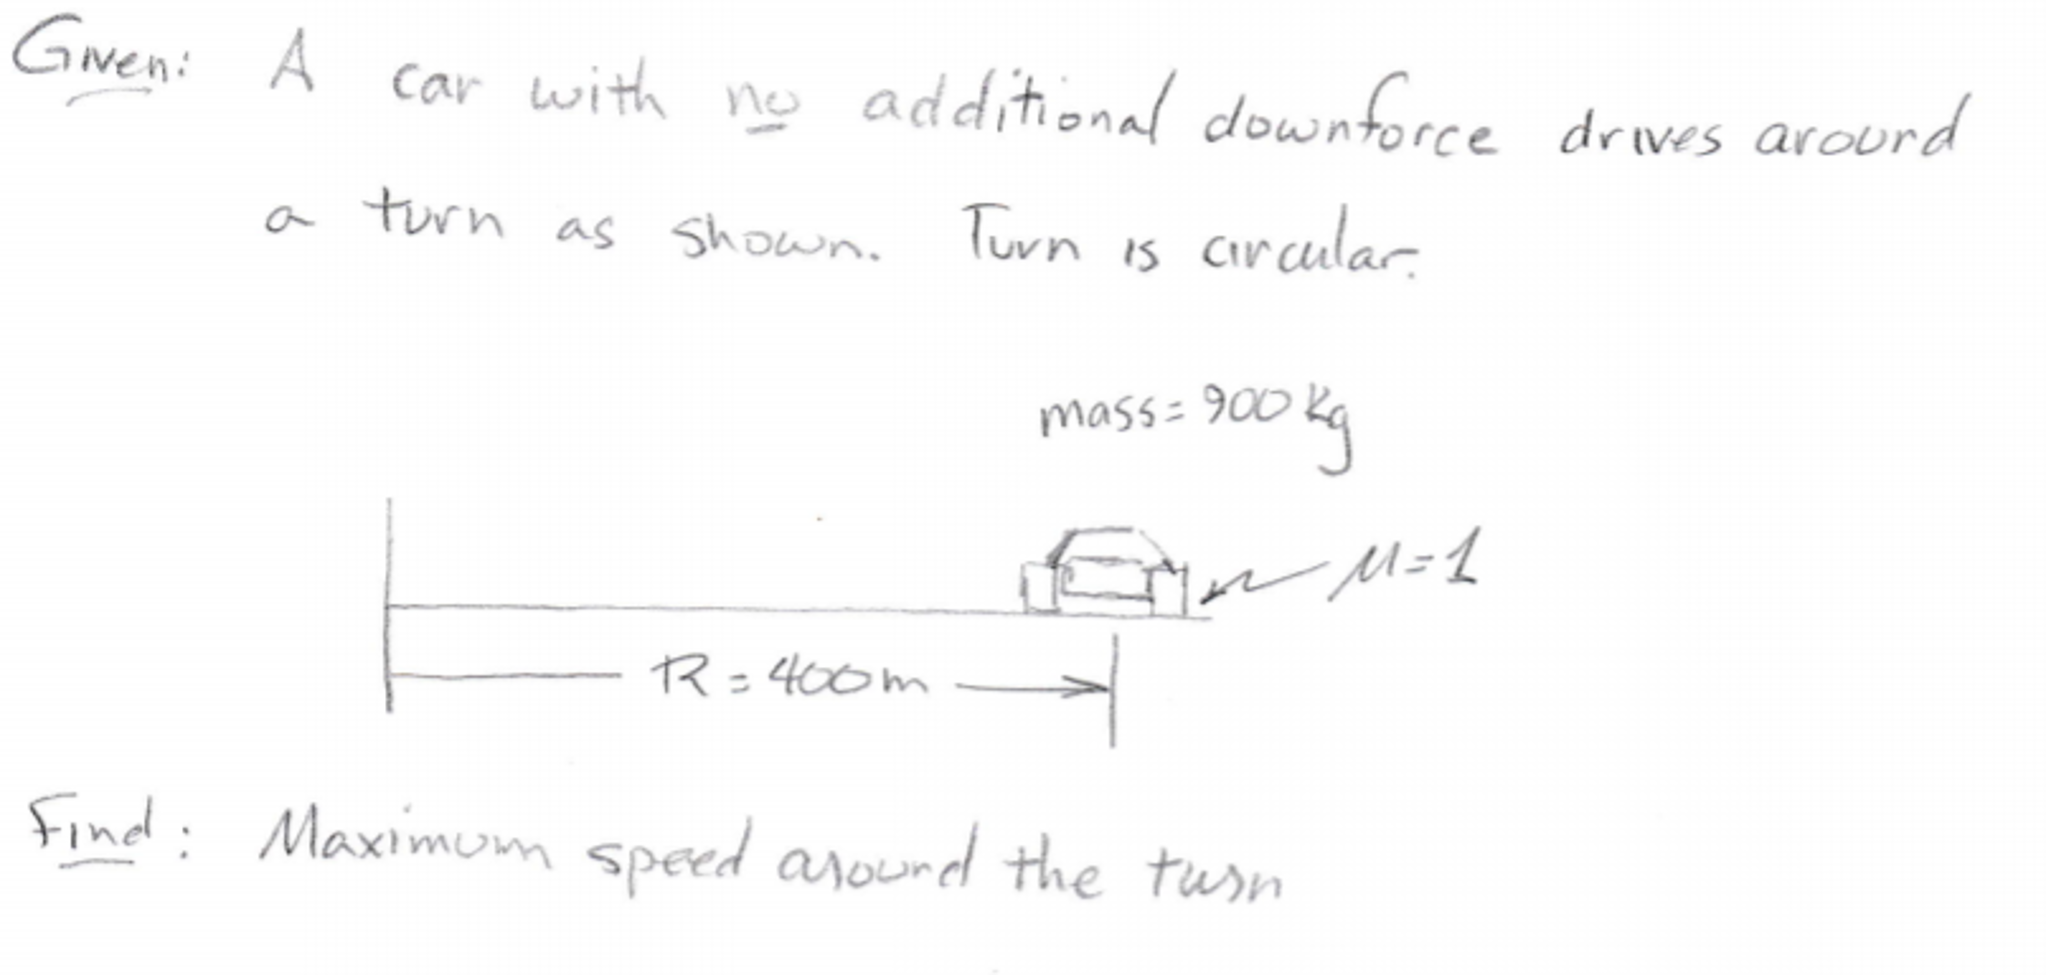 Given: A car with no additional downforce drives around
a turn as shown. Turn is circular.
mass = 900 kg
μ = 1
R = 400m
Find: Maximum speed around the turn